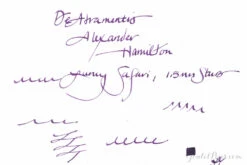 DeAtramentis
Alexander
Hamilton
Lamy Safari, 1.5mm Stub